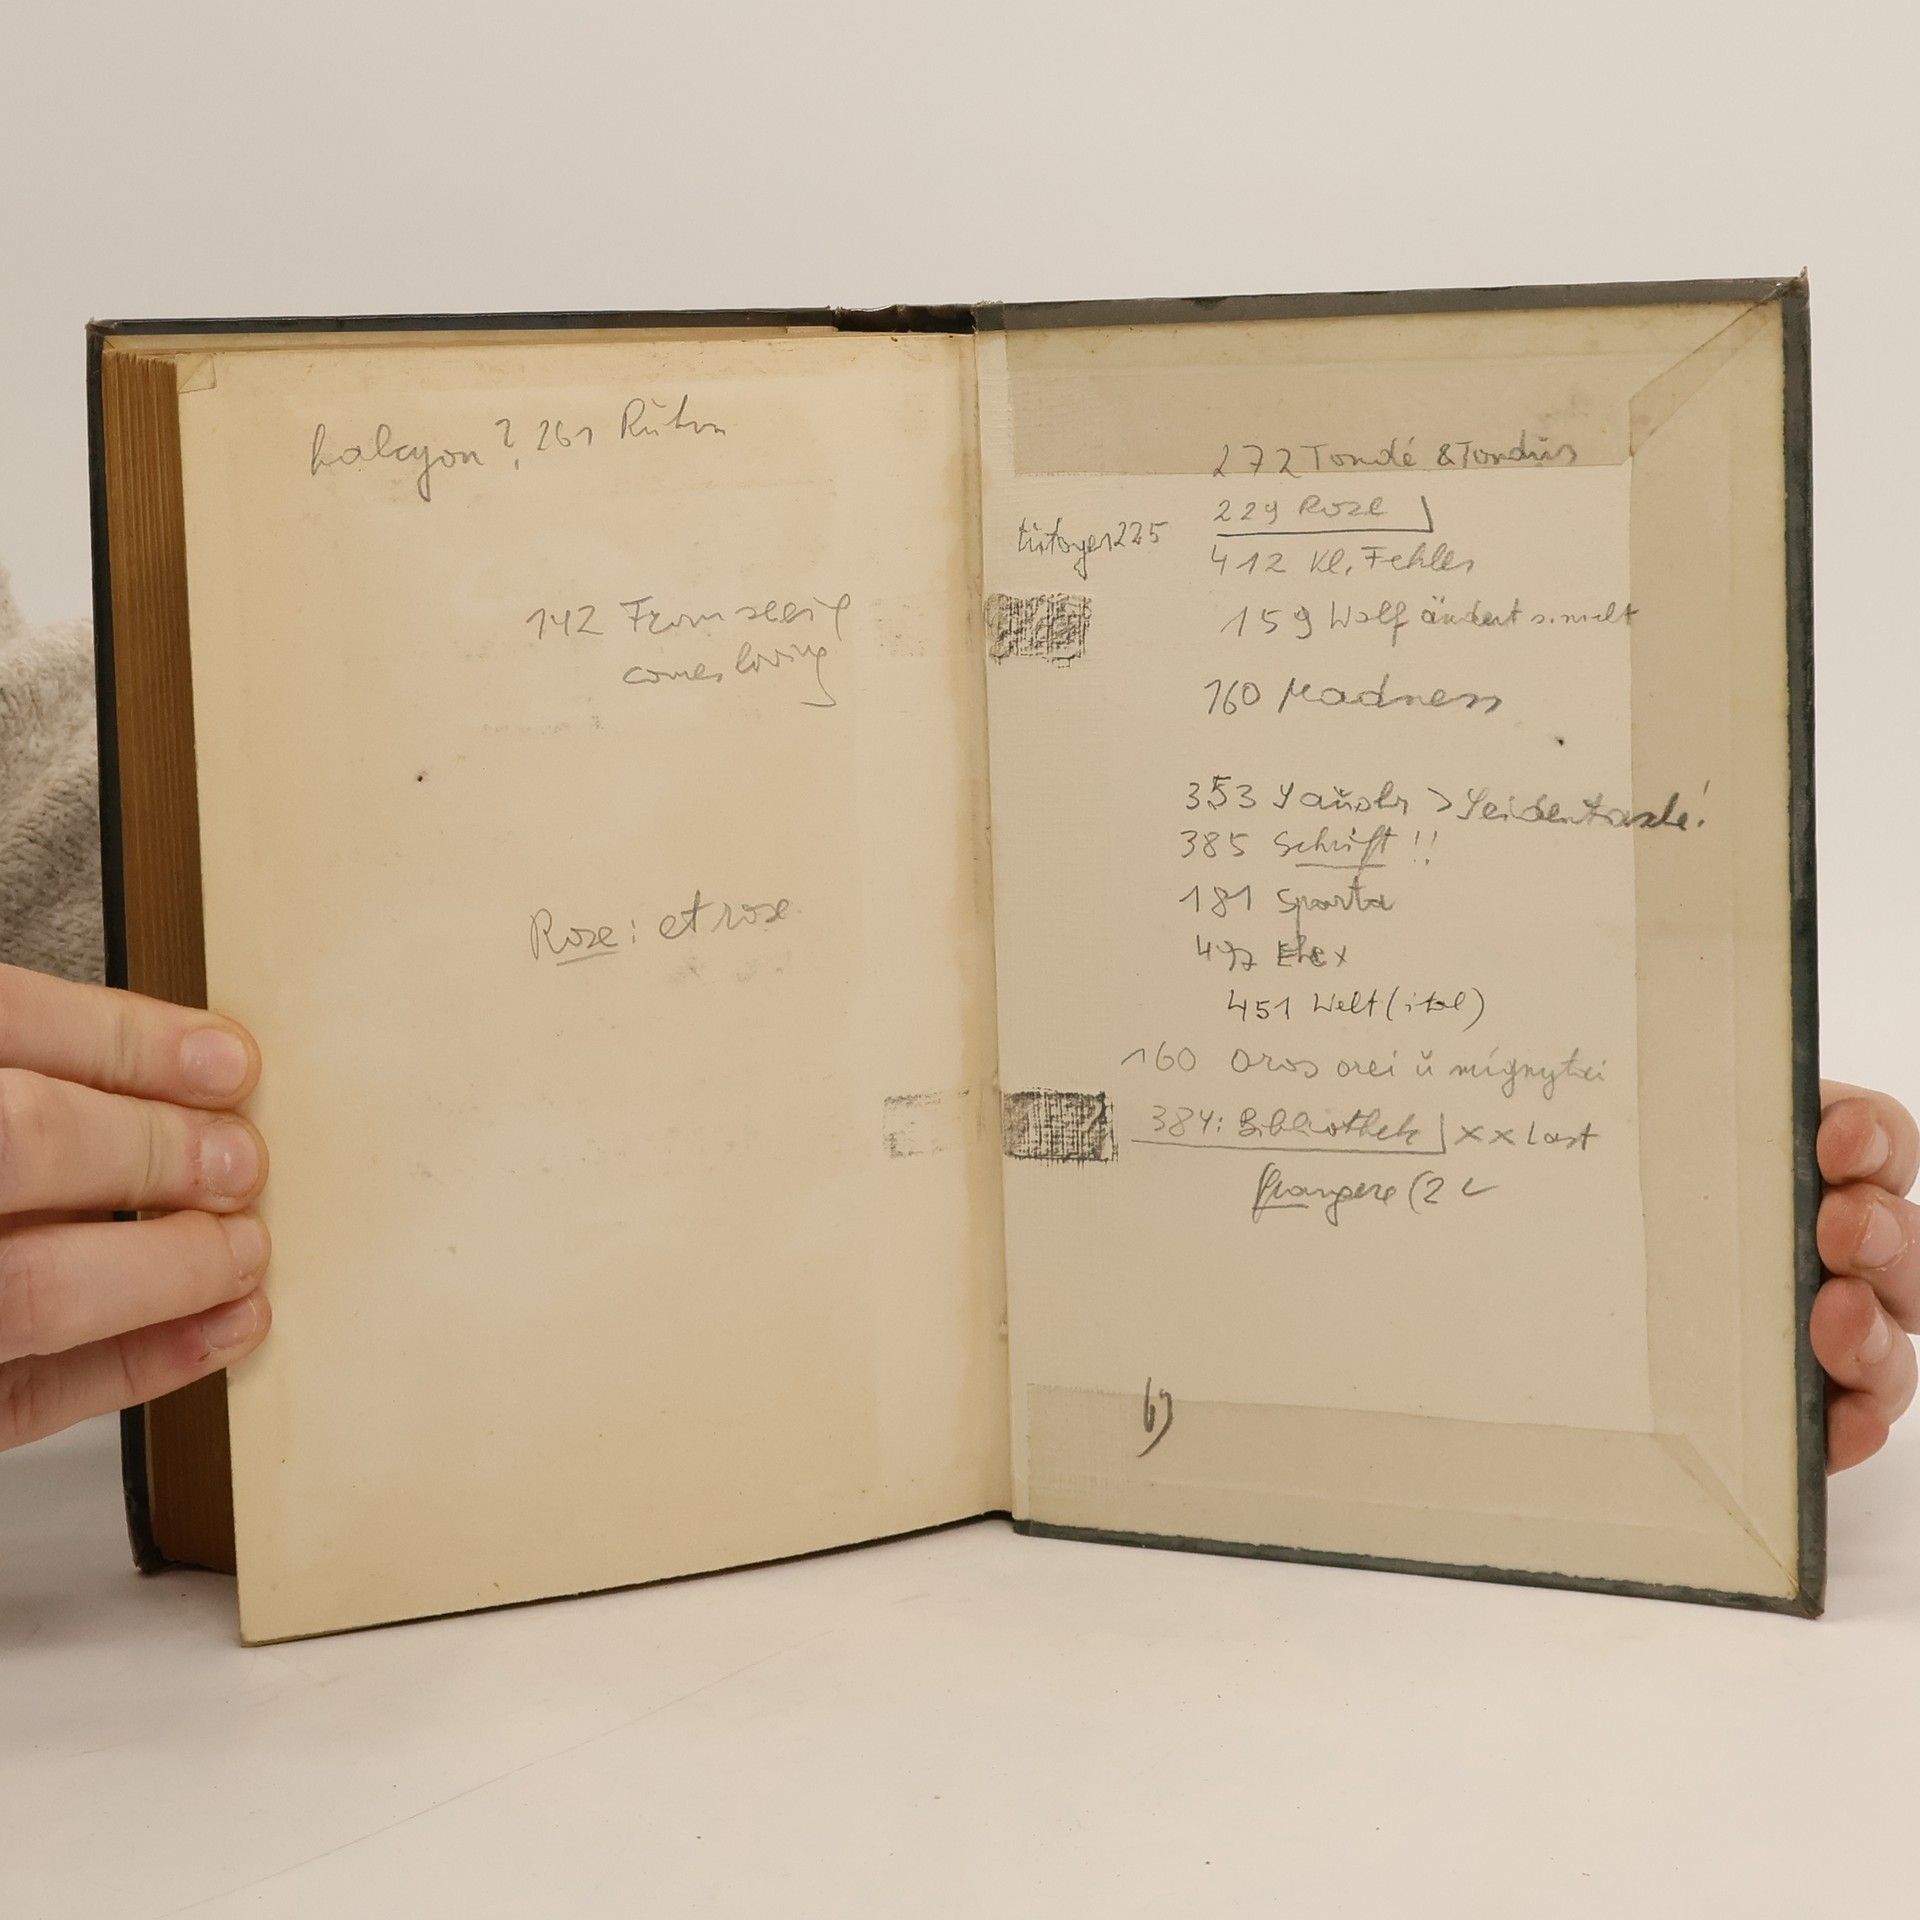 halcyon ? 261 Ruhm
142 From seeing
comes loving
Rose: et rose
272 Tondé & Tondus
229 Rose
tutoyer 225
412 Kl. Fehler
159 Wolf ändert s. nicht
160 Madness
353 Sauohr > Seidentasche!
385 Schrift !!
181 Sparta
497 Ehe x
451 Welt (ital)
160 Oros orei u
384: Bibliothek x x Last
(2